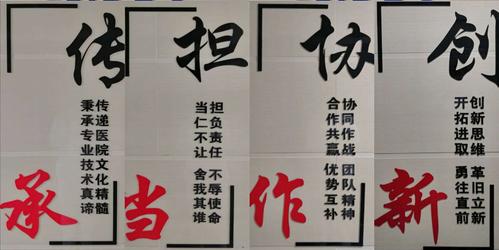 传承
传递医院文化精髓
秉承专业技术真谛
担当
担负责任 不辱使命
当仁不让 舍我其谁
协作
协同作战 团队精神
合作共赢 优势互补
创新
创新思维 革旧立新
开拓进取 勇往直前